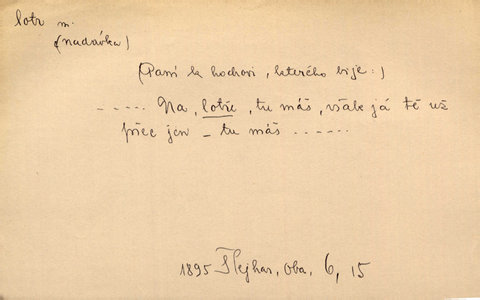 lotr m.
(nadávka)
(Paní k hochovi, kterého bije:)
- - - - - Na, lotře, tu máš, však já tě už
přec jen – tu máš - - - - - -
1895 Šlejhar, Oba, 6, 15